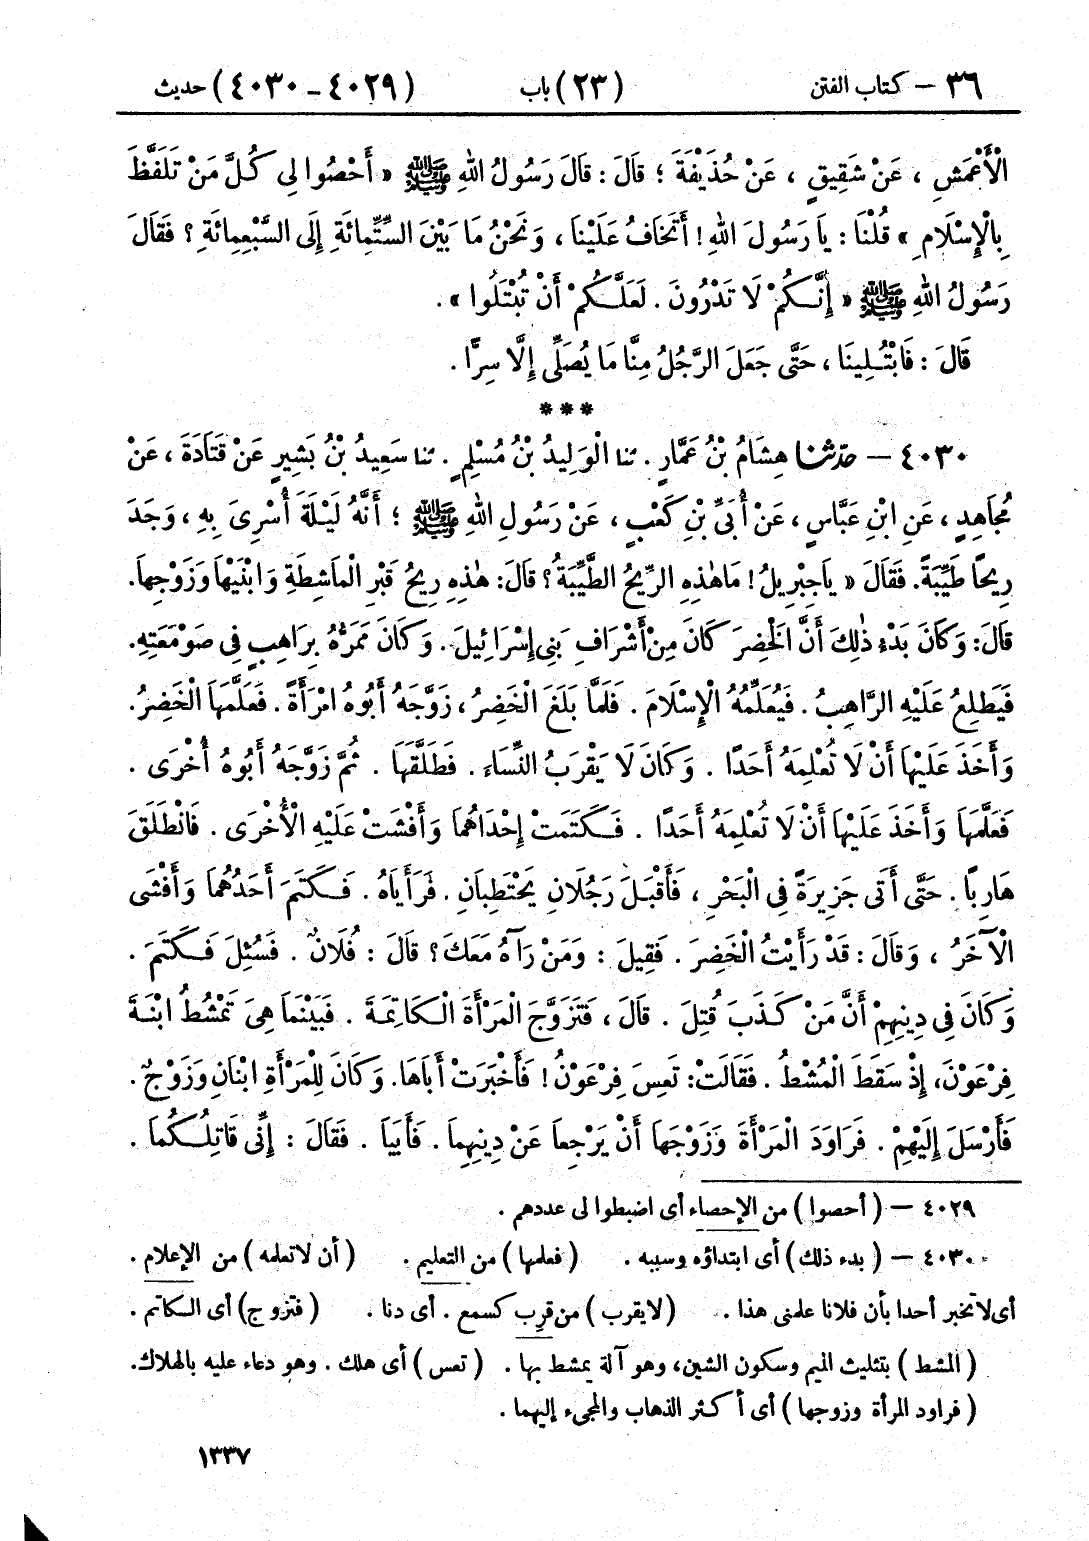 ٣٦ – كتاب الفتن (٢٣) باب (٤٠٢٩ - ٤٠٣٠) حديث
الْأَعْمَشِ ، عَنْ شَقِيقٍ ، عَنْ حُذَيْفَةَ ؛ قَالَ : قَالَ رَسُولُ اللهِ ﷺ « أَحْصُوا لِى كُلَّ مَنْ تَلَفَّظَ
بِالْإِسْلَامِ » قُلْنَا : يَا رَسُولَ اللهِ ! أَتَخَافُ عَلَيْنَا ، وَنَحْنُ مَا بَيْنَ السِّتِّمِائَةِ إِلَى السَّبْعِمِائَةِ ؟ فَقَالَ
رَسُولُ اللهِ ﷺ « إِنَّكُمْ لَا تَدْرُونَ . لَعَلَّكُمْ أَنْ تُبْتَلُوا » .
قَالَ : فَابْتُلِينَا ، حَتَّى جَعَلَ الرَّجُلُ مِنَّا مَا يُصَلِّى إِلَّا سِرًّا .
***
٤٠٣٠ – حَدَّثَنَا هِشَامُ بْنُ عَمَّارٍ . ثنا الْوَلِيدُ بْنُ مُسْلِمٍ . ثنا سَعِيدُ بْنُ بَشِيرٍ عَنْ قَتَادَةَ ، عَنْ
مُجَاهِدٍ ، عَنِ ابْنِ عَبَّاسٍ ، عَنْ أُبَىِّ بْنِ كَعْبٍ ، عَنْ رَسُولِ اللهِ ﷺ ؛ أَنَّهُ لَيْلَةَ أُسْرِىَ بِهِ ، وَجَدَ
رِيحًا طَيِّبَةً . فَقَالَ « يَا جِبْرِيلُ ! مَا هٰذِهِ الرِّيحُ الطَّيِّبَةُ ؟ قَالَ : هٰذِهِ رِيحُ قَبْرِ الْمَاشِطَةِ وَابْنَيْهَا وَزَوْجِهَا .
قَالَ : وَكَانَ بَدْءُ ذٰلِكَ أَنَّ الْخَضِرَ كَانَ مِنْ أَشْرَافِ بَنِى إِسْرَائِيلَ . وَكَانَ مَمَرُّهُ بِرَاهِبٍ فِى صَوْمَعَتِهِ .
فَيَطَّلِعُ عَلَيْهِ الرَّاهِبُ . فَيُعَلِّمُهُ الْإِسْلَامَ . فَلَمَّا بَلَغَ الْخَضِرُ ، زَوَّجَهُ أَبُوهُ امْرَأَةً . فَعَلَّمَهَا الْخَضِرُ .
وَأَخَذَ عَلَيْهَا أَنْ لَا تُعْلِمَهُ أَحَدًا . وَكَانَ لَا يَقْرَبُ النِّسَاءَ . فَطَلَّقَهَا . ثُمَّ زَوَّجَهُ أَبُوهُ أُخْرَى .
فَعَلَّمَهَا وَأَخَذَ عَلَيْهَا أَنْ لَا تُعْلِمَهُ أَحَدًا . فَكَتَمَتْ إِحْدَاهُمَا وَأَفْشَتْ عَلَيْهِ الْأُخْرَى . فَانْطَلَقَ
هَارِبًا . حَتَّى أَتَى جَزِيرَةً فِى الْبَحْرِ ، فَأَقْبَلَ رَجُلَانِ يَحْتَطِبَانِ . فَرَأَيَاهُ . فَكَتَمَ أَحَدُهُمَا وَأَفْشَى
الْآخَرُ ، وَقَالَ : قَدْ رَأَيْتُ الْخَضِرَ . فَقِيلَ : وَمَنْ رَآهُ مَعَكَ ؟ قَالَ : فُلَانٌ . فَسُئِلَ فَكَتَمَ .
وَكَانَ فِى دِينِهِمْ أَنَّ مَنْ كَذَبَ قُتِلَ . قَالَ ، فَتَزَوَّجَ الْمَرْأَةَ الْكَاتِمَةَ . فَبَيْنَمَا هِىَ تَمْشُطُ ابْنَةَ
فِرْعَوْنَ ، إِذْ سَقَطَ الْمُشْطُ . فَقَالَتْ : تَعِسَ فِرْعَوْنُ ! فَأَخْبَرَتْ أَبَاهَا . وَكَانَ لِلْمَرْأَةِ ابْنَانِ وَزَوْجٌ .
فَأَرْسَلَ إِلَيْهِمْ . فَرَاوَدَ الْمَرْأَةَ وَزَوْجَهَا أَنْ يَرْجِعَا عَنْ دِينِهِمَا . فَأَبَيَا . فَقَالَ : إِنِّى قَاتِلُكُمَا .
٤٠٢٩ – ( أحصوا ) من الإحصاء أى اضبطوا لى عددهم .
٤٠٣٠ – ( بدء ذلك ) أى ابتداؤه وسببه . ( فعلمها ) من التعليم . ( أن لا تعلمه ) من الإعلام .
أى لا تخبر أحدا بأن فلانا علمنى هذا . ( لا يقرب ) من قرب كسمع . أى دنا . ( فتزوج ) أى الكاتم .
( المشط ) بتثليث الميم وسكون الشين ، وهو آلة يمشط بها . ( تعس ) أى هلك . وهو دعاء عليه بالهلاك .
( فراود المرأة وزوجها ) أى أكثر الذهاب والمجىء إليهما .
١٣٣٧